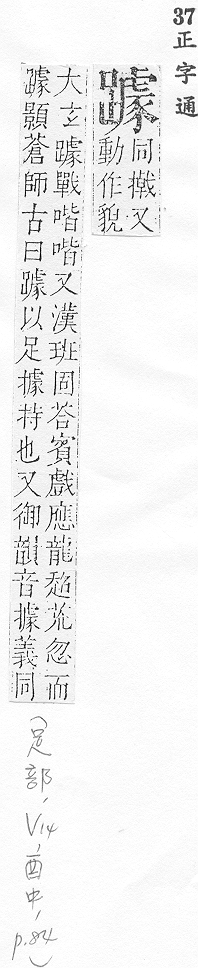 37正字通
躆
同㨿又
動作貌
大玄躆戰喈喈又漢班固荅賓戲應龍超荒忽而
躆顥蒼師古曰躆以足據持也又御韻音據義同
(足部, V14, 酉中, p.84)